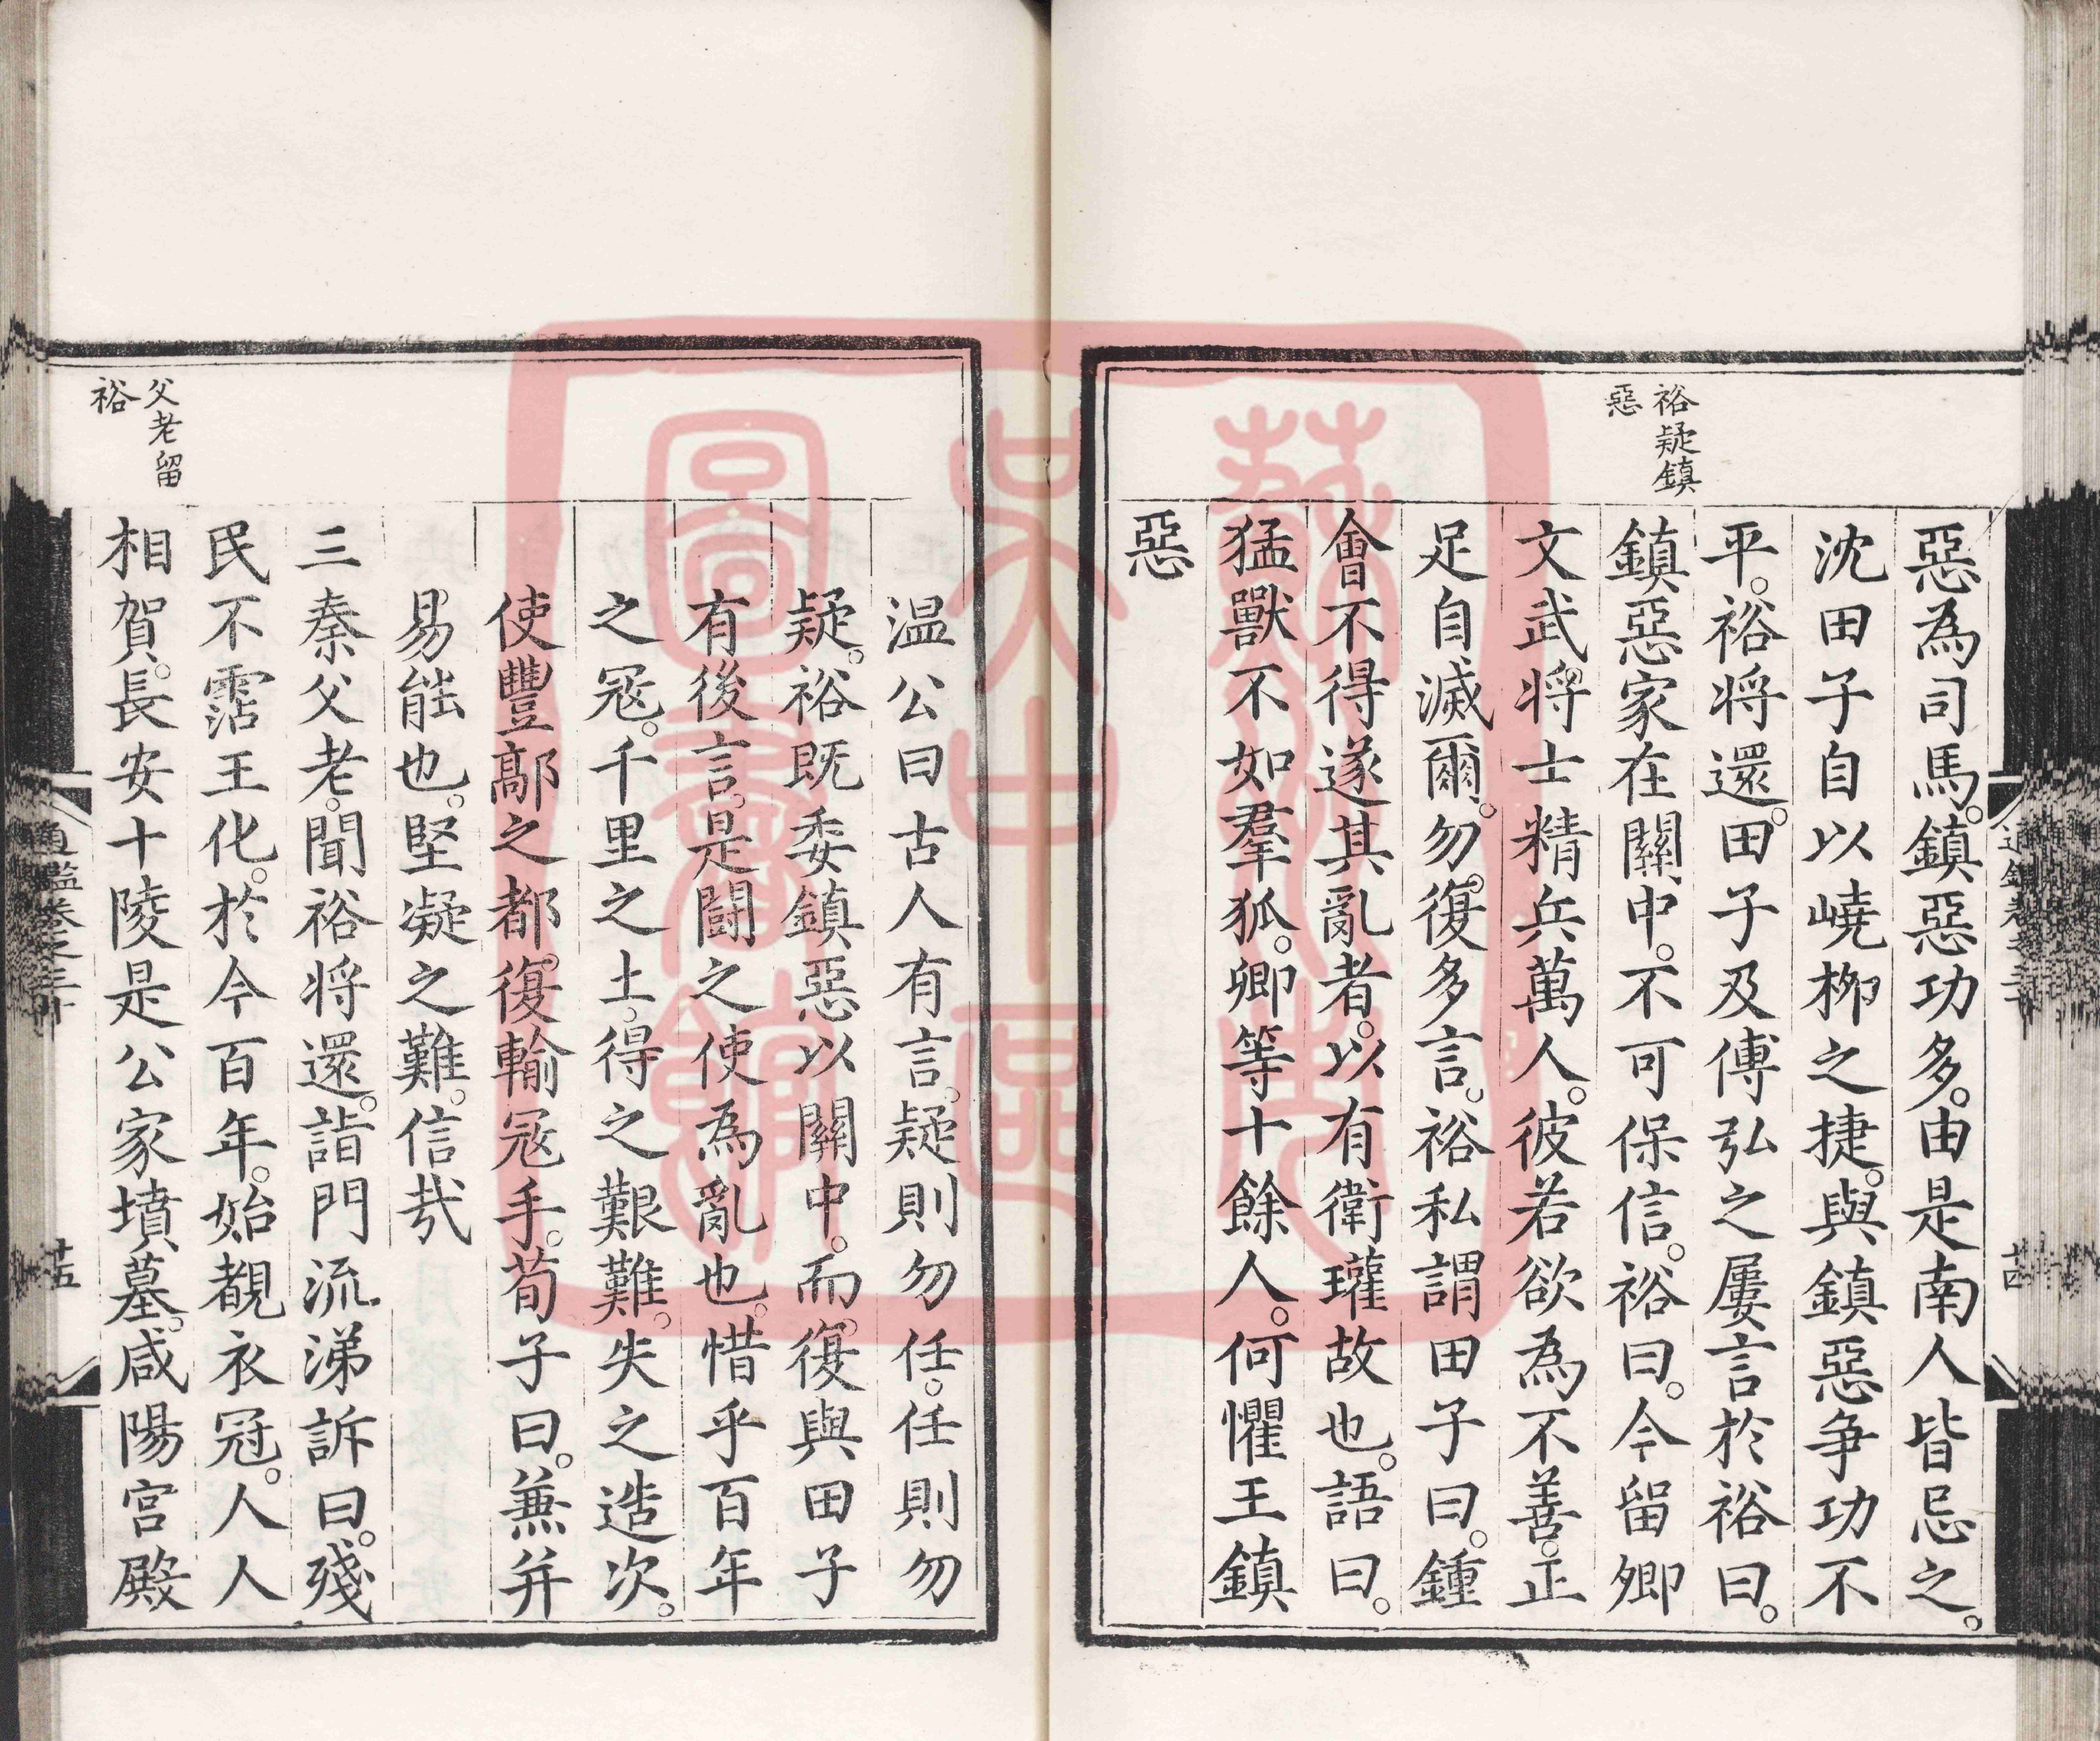 裕疑鎮
惡
惡為司馬。鎮惡功多。由是南人皆忌之。
沈田子自以嶢柳之捷。與鎮惡爭功不
平。裕将還。田子及傅弘之屢言於裕曰。
鎮惡家在關中。不可保信。裕曰。今留卿
文武将士精兵萬人。彼若欲為不善。正
足自滅爾。勿復多言。裕私謂田子曰。鍾
會不得遂其亂者。以有衛瓘故也。語曰。
猛獸不如羣狐。卿等十餘人。何懼王鎮
惡
父老留
裕
温公曰古人有言。疑則勿任。任則勿
疑。裕既委鎮惡以關中。而復與田子
有後言。是鬬之使為亂也。惜乎百年
之冦。千里之土。得之艱難。失之造次。
使豐鄗之都。復輸冦手。荀子曰。兼并
易能也。堅凝之難。信哉
三秦父老。聞裕将還。詣門流涕訴曰。殘
民不霑王化。於今百年。始覩衣冠。人人
相賀。長安十陵是公家墳墓。咸陽宫殿
通鑑卷之三十
十五
圖書館